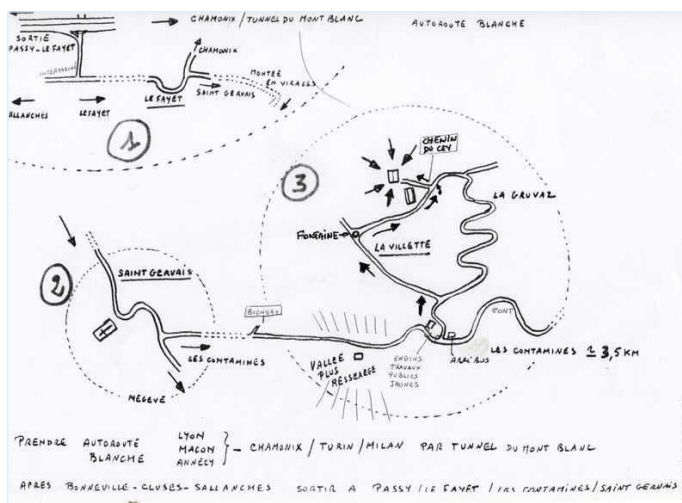 → CHAMONIX / TUNNEL DU MONT BLANC
AUTOROUTE BLANCHE
SORTIE
PASSY-LE FAYET
CHAMONIX
MONTÉE
EN VIRAGES
LE FAYET
SAINT GERVAIS
LEFAYET
1
CHEMIN
DU CEY
3
LA GRUVAZ
FONTAINE
LA VILLETTE
SAINT GERVAIS
2
BIONNAY
PONT
LES CONTAMINES
VALLÉE
PLUS
RESSERRÉE
ENGINS
TRAVAUX
PUBLICS
JAUNES
ARRÊT BUS
LES CONTAMINES ≃ 3,5 KM
MEGÈVE
PRENDRE AUTOROUTE BLANCHE
LYON
MACON
ANNECY
} — CHAMONIX / TURIN / MILAN PAR TUNNEL DU MONT BLANC
APRES BONNEVILLE-CLUSES-SALLANCHES SORTIR A PASSY / LE FAYET / LES CONTAMINES / SAINT GERVAIS